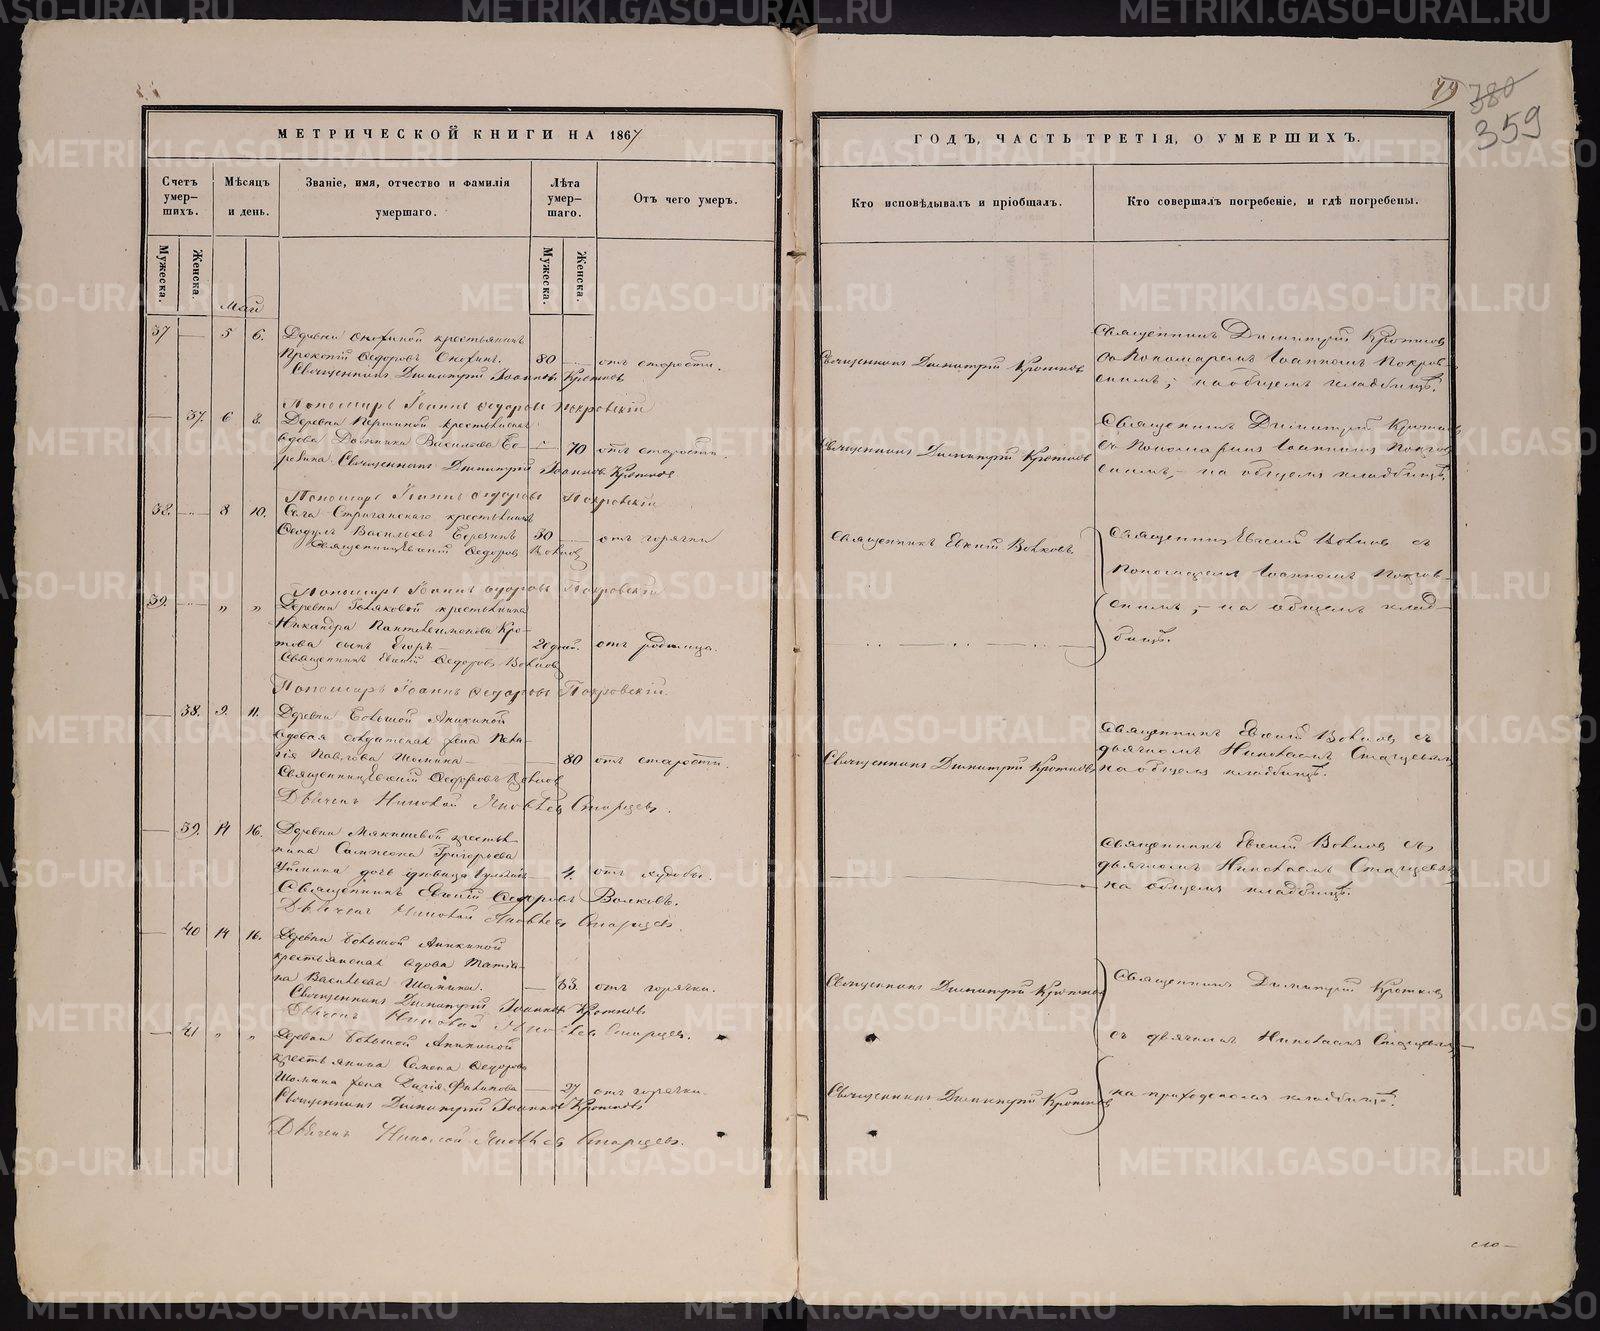 МЕТРИЧЕСКОЙ КНИГИ НА 1867
Счетъ умер-шихъ.
Мѣсяцъ и день.
Званіе, имя, отчество и фамилія умершаго.
Лѣта умер-шаго.
Отъ чего умеръ.
Мужеска.
Женска.
Мужеска.
Женска.
Май
37 5 6. Деревни крестьянинъ
Ѳедоровъ 80 отъ старости.
Священникъ Димитрій Іоанновъ Кротковъ
Пономарь Іоаннъ Ѳедоровъ Покровскій
37. 6 8. Деревни
вдова Васильева 70 отъ старости.
Священникъ Димитрій Іоанновъ Кротковъ
Пономарь Іоаннъ Ѳедоровъ Покровскій
38. 8 10. Села Стриганскаго крестьянинъ
Васильевъ Березинъ 30 отъ горячки
Священникъ Евгеній Ѳедоровъ Волковъ
Пономарь Іоаннъ Ѳедоровъ Покровскій
39. „ „ Деревни крестьянина
Никандра Пантелеимонова Кро-
това сынъ Егоръ отъ родимца.
Священникъ Евгеній Ѳедоровъ Волковъ
Пономарь Іоаннъ Ѳедоровъ Покровскій.
38. 9. 11. Деревни Большой Аникиной
солдатская жена Пела-
гія 80 отъ старости.
Священникъ Евгеній Ѳедоровъ Волковъ
Дьячекъ Николай Яковлевъ Старцевъ.
39. 14 16. Деревни Мякишевой крестья-
нина Григорьева
дочь дѣвица 4. отъ худобы.
Священникъ Евгеній Ѳедоровъ Волковъ.
Дьячекъ Николай Яковлевъ Старцевъ.
40 14 16. Деревни Большой Аникиной
крестьянская вдова Татія-
на Васильева 63. отъ горячки.
Священникъ Димитрій Іоанновъ Кротковъ
Дьячекъ Николай Яковлевъ Старцевъ.
41 „ „ Деревни Большой Аникиной
крестьянина Семена Ѳедорова
жена 27 отъ горячки.
Священникъ Димитрій Іоанновъ Кротковъ
Дьячекъ Николай Яковлевъ Старцевъ.
79 380
359
ГОДЪ, ЧАСТЬ ТРЕТІЯ, О УМЕРШИХЪ.
Кто исповѣдывалъ и пріобщалъ.
Кто совершалъ погребеніе, и гдѣ погребены.
Священникъ Димитрій Кротковъ
Священникъ Димитрій Кротковъ
съ Пономаремъ Іоанномъ Покров-
скимъ, на общемъ кладбищѣ.
Священникъ Димитрій Кротковъ
Священникъ Димитрій Кротковъ
съ Пономаремъ Іоанномъ Покров-
скимъ, на общемъ кладбищѣ.
Священникъ Евгеній Волковъ
Священникъ Евгеній Волковъ съ
пономаремъ Іоанномъ Покров-
скимъ, на общемъ клад-
бищѣ.
Священникъ Димитрій Кротковъ
Священникъ Евгеній Волковъ съ
дьячкомъ Николаемъ Старцевымъ
на общемъ кладбищѣ.
Священникъ Евгеній Волковъ съ
дьячкомъ Николаемъ Старцевымъ
на общемъ кладбищѣ.
Священникъ Димитрій Кротковъ
Священникъ Димитрій Кротковъ
съ дьячкомъ Николаемъ Старцевымъ
Священникъ Димитрій Кротковъ
на приходскомъ кладбищѣ.
METRIKI.GASO-URAL.RU